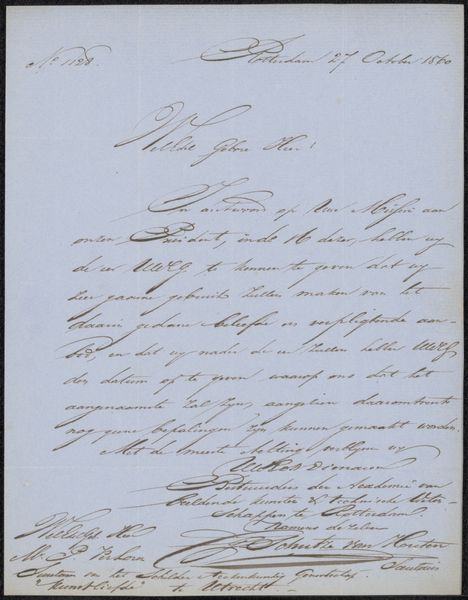 No 1128.
Rotterdam 27 October 1860
WelEdel Geboren Heer!
In antwoord op Uwe Missive aan
onzen President, in de 16 dezer, hebben wij
de eer UWEG. te kennen te geven dat wij
zeer gaarne gebruik zullen maken van het
daarin gedane beleefde en verpligtende aan-
bod, en dat wij nader de eer zullen hebben UWEG
den datum op te geven waarop ons dat het
aangenaamste zal zijn, aangezien daaromtrent
nog geene bepalingen zijn kunnen gemaakt worden.
Met de meeste Achting verblyven wij
UWEG Dienaren
Bestuurders der Academie van
beeldende kunsten & technische Weten-
schappen te Rotterdam
Namens dezelve
Schultze van Houten
Secretaris
WelEdele Heer
Mr. P. Verloren
Secretaris van het Schilder en Teekenkundig Genootschap
"Kunstliefde" te Utrecht